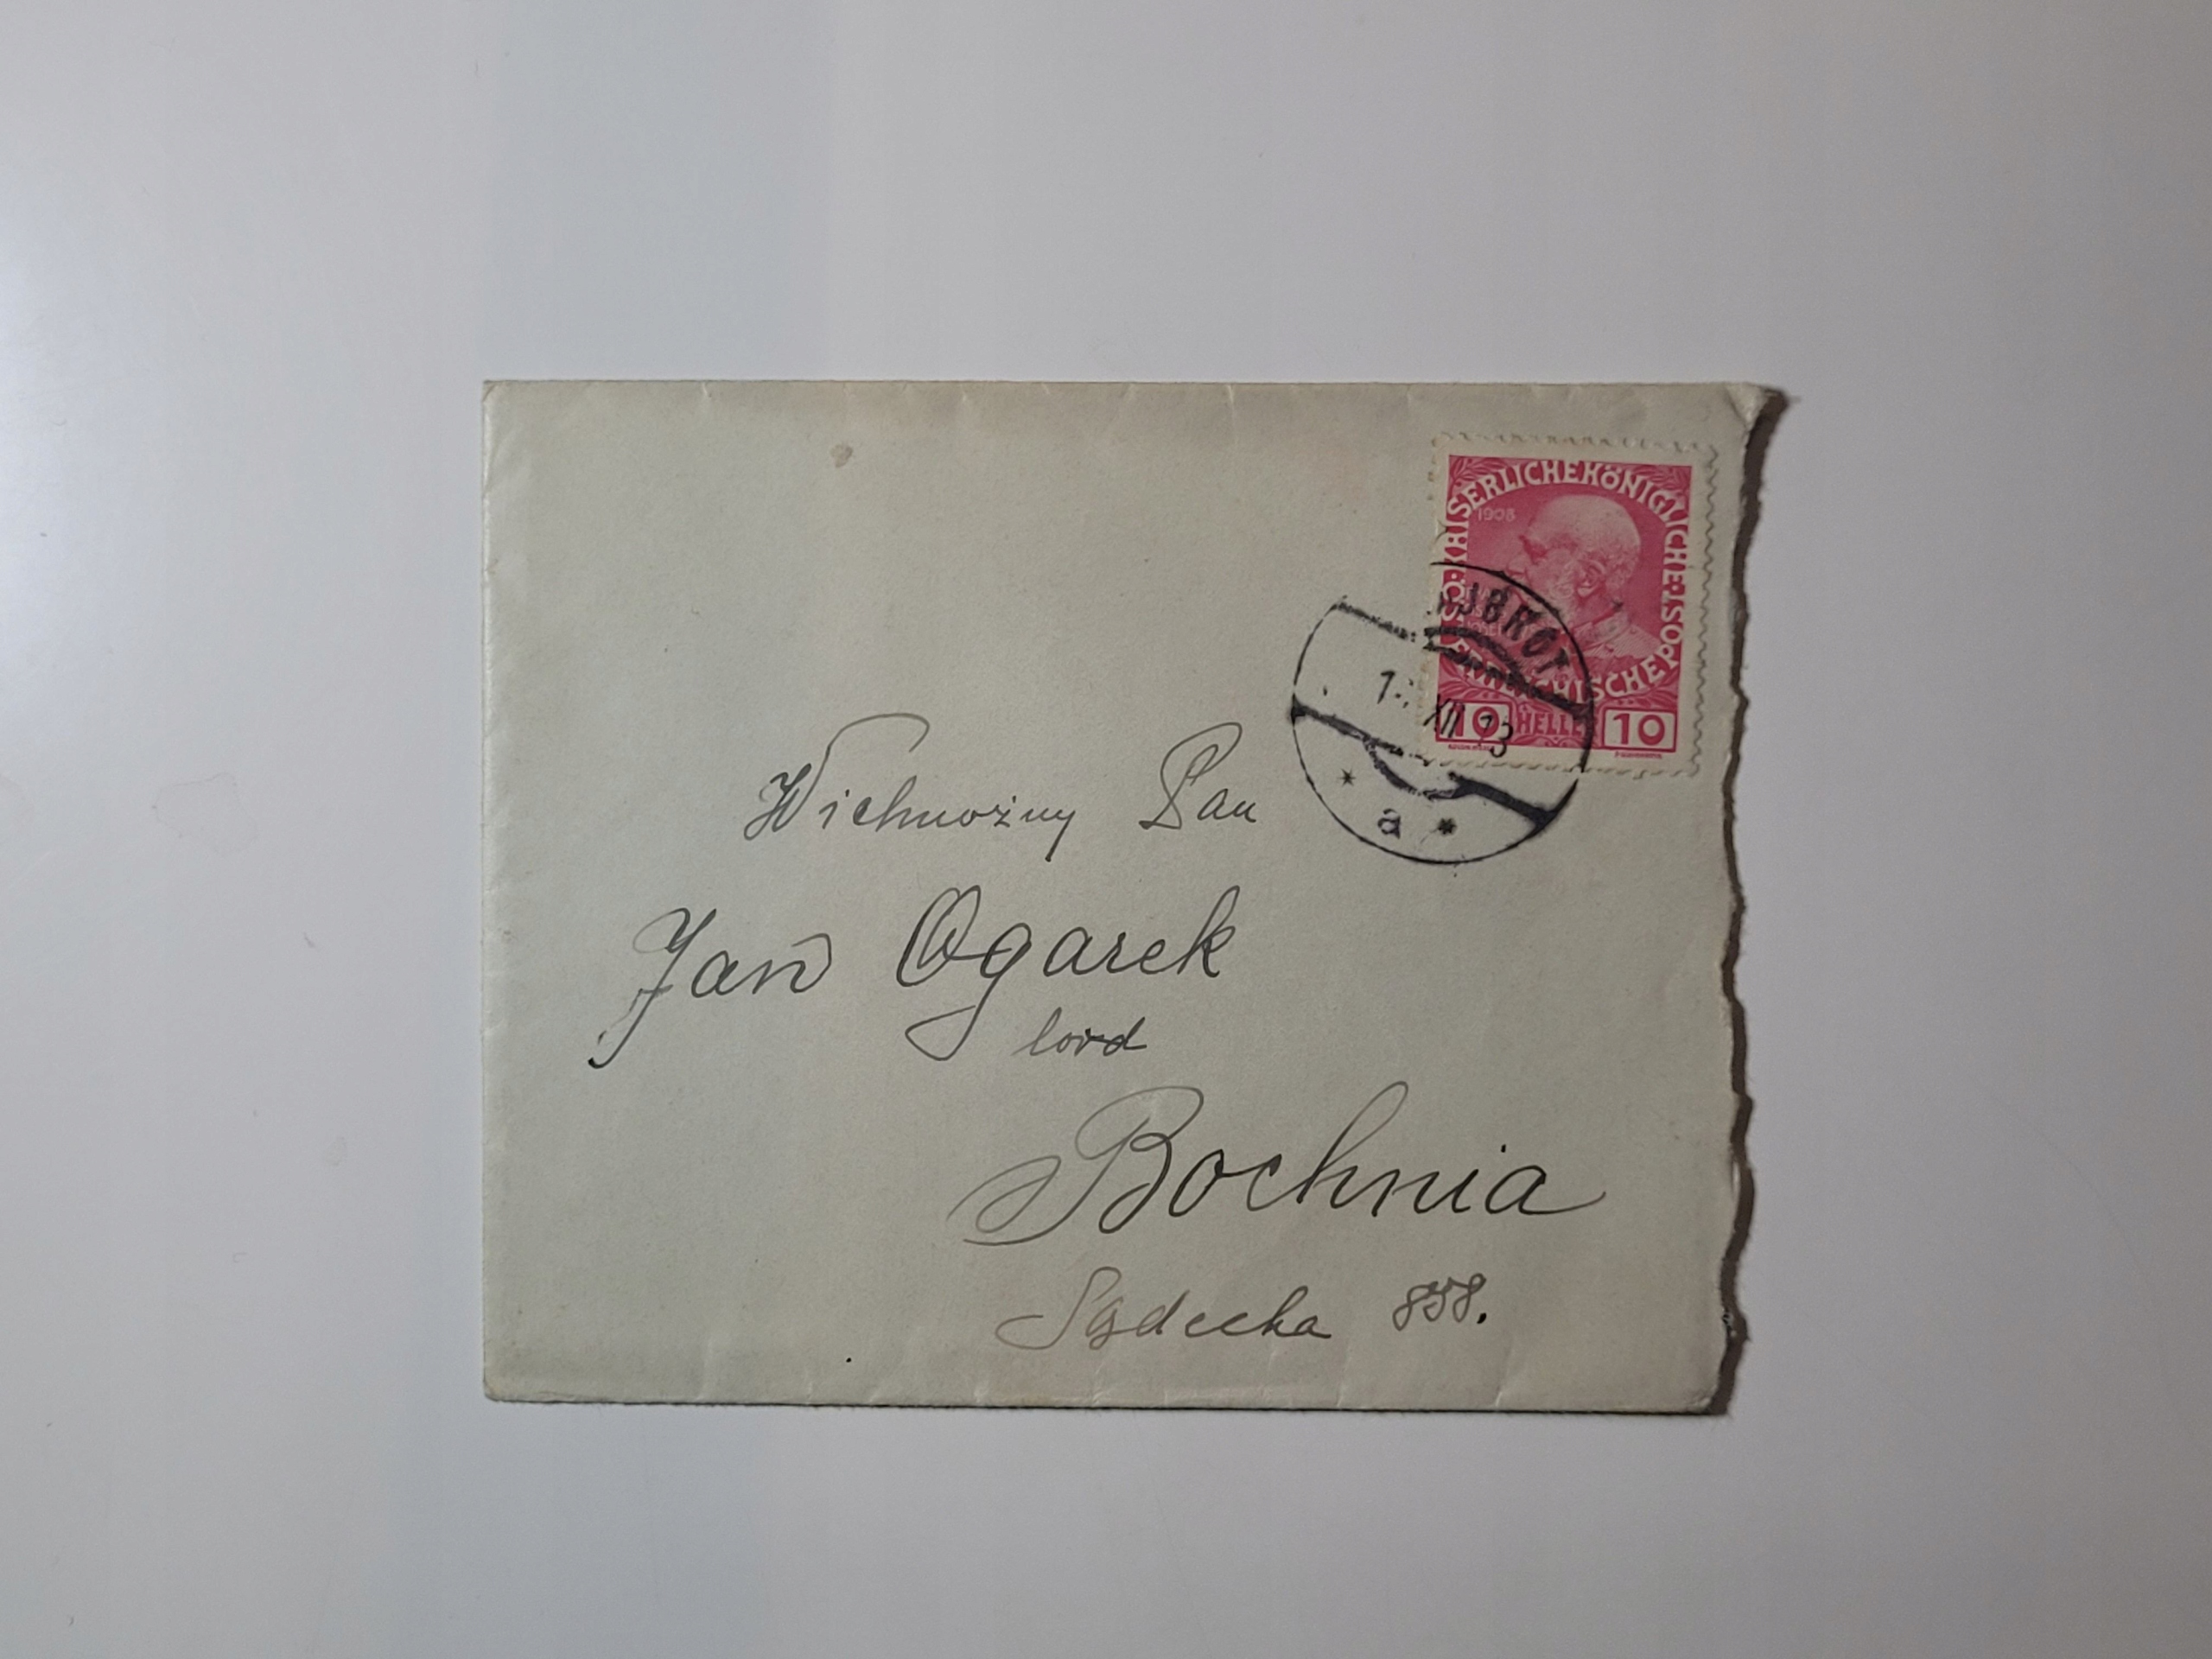 KAISERLICHE KÖNIGLICHE ÖSTERREICHISCHE POST
1908
10 HELLER 10
XII 13
a
Wielmożny Pan
Jan Ogarek
lord
Bochnia
Sądecka 858.